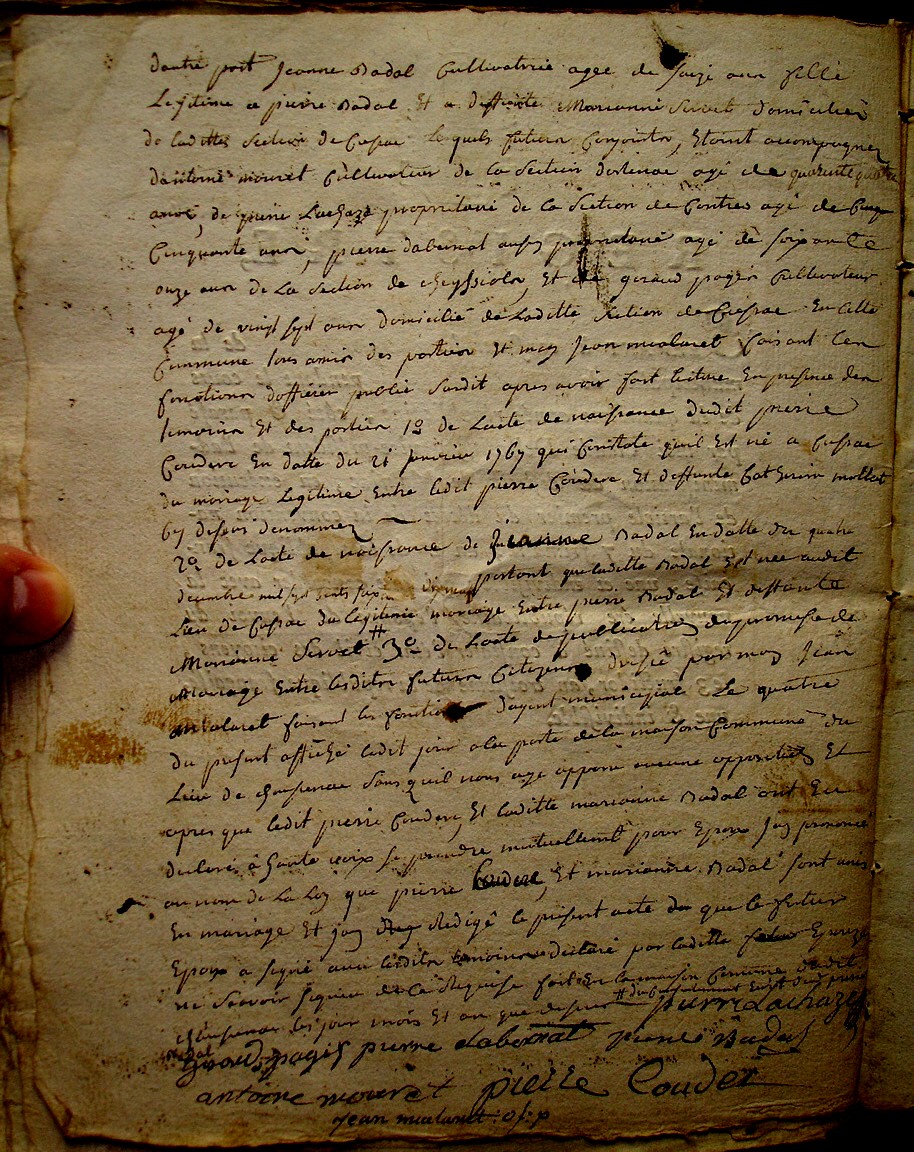 dautre part Jeanne Badal Cultivatrice agee de seize ans fille
Legitime a pierre Badal Et a deffunte Marianne Servet domiciliés
de laditte Section de Cussac lesquels futurs Conjoints, Etant accompagnez
dantoine mouret Cultivateur de la Section agé de quarente quatre
ans, de pierre Lachaze proprietaire de la Section de Contres agé de
Cinquante ans, pierre dabernat aussy proprietaire agé de soixante
onze ans de La Section de cheyssiols, Et de geraud pagés Cultivateur
agé de vingt sept ans domicilié de Laditte Section de Cussac En cette
Commune tous amis des parties Et moy Jean mialaret faisant les
fonctions dofficier public Susdit apres avoir fait lecture En presence des
temoins Et des parties 1º de Lacte de naissance dudit pierre
Couderc En datte du 21 janvier 1767 qui Constate quil Est né a Cussac
du mariage Legitime Entre ledit pierre Couderc Et deffunte Caterine
by dessus denommez
2º de Lacte de naissance de Jeanne Badal En datte du quatre
decembre mil sept cents portant que laditte Badal Est née audit
Lieu de Cussac du legitime mariage Entre pierre Badal Et deffunte
Marianne Servet # 3º de Lacte de publication de promesse de
mariage Entre lesdits futurs Citoyens dressé par moy Jean
mialaret faisant les fonctions dagent municipial Le quatre
du present affiché ledit jour a la porte de la maison Commune du
Lieu de chaussenac Sans quil nous aye apparu aucune opposition Et
apres que ledit pierre Couderc, Et laditte marianne Badal ont Eu
declaré à haute voix se prendre mutuellement pour Epoux Jay prononcé
au nom de La Loy que pierre Couderc, Et marianne Badal sont unis
En mariage Et jay Redigé le present acte que le futur
Epoux a signé avec lesdits temoins declaré par laditte Epouze
ne Scavoir signer de ce Requise fait En la maison Comune dudit
chaussenac les jour mois Et an que dessus pierre Lachaze
Geraud pagés pierre dabernat pierre Badal
antoine mouret pierre Couderc
Jean mialaret of: p